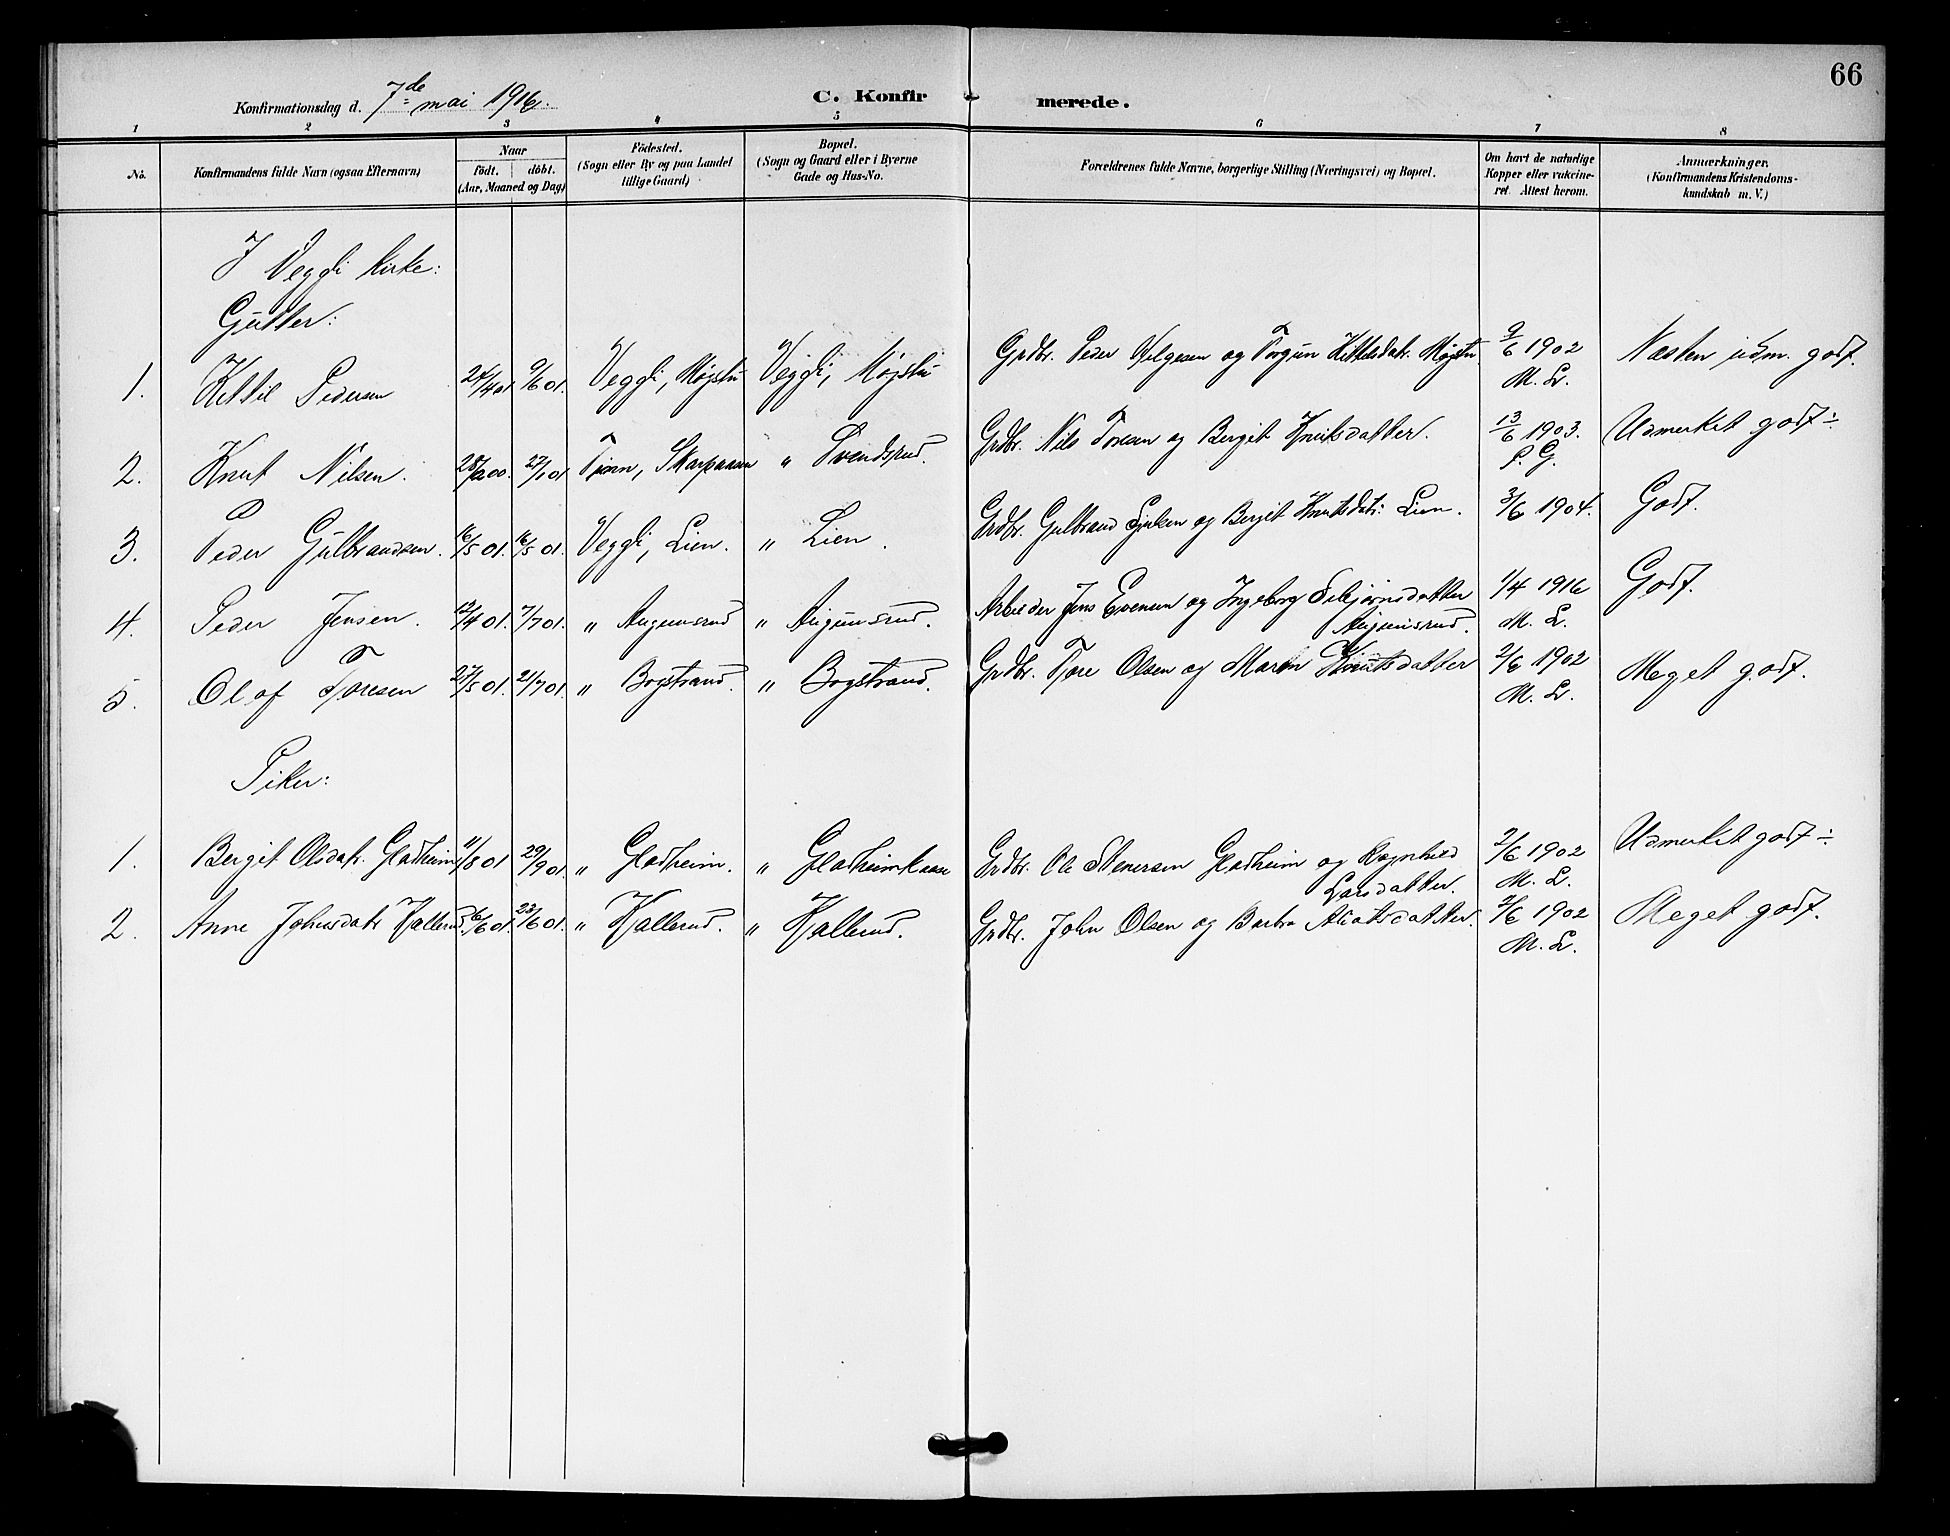 66
Konfirmationsdag d. 7de mai 1916.
C. Konfirmerede.
1 2 3 4 5 6 7 8
No. Konfirmandens fulde Navn (ogsaa Efternavn) Naar født. døbt. (Aar, Maaned og Dag) Födested. (Sogn eller By og paa Landet tillige Gaard) Bopæl. (Sogn og Gaard eller i Byerne Gade og Hus-No. Forældrenes fulde Navne, borgerlige Stilling (Næringsvei) og Bopæl. Om havt de naturlige Kopper eller vakcineret. Attest herom. Anmærkninger. (Konfirmandens Kristendomskundskab m. V.)
I Veggli kirke:
Gutter:
1. Kittil Pedersen 24/4 01 9/6 01. Veggli, Møjstu Veggli, Møjstu Grdbr. Peder Helgesen og Torgun Kittelsdatr. Møjstu 9/6 1902 M. L. Næsten udm. godt.
2. Knut Nilsen. 00. 27/1 01 Tinn, " Svendsrud. Grdbr. Nils Toresen og Bergit Knutsdatter. 13/6 1903. P. G. Udmerket godt ÷
3. Peder Gulbrandsen. 16/5 01. 16/5 01. Veggli, Lien. " Lien. Grdbr. Gulbrand og Bergit Knutsdatr. Lien. 3/6 1904. Godt.
4. Peder Jensen. 12/4 01. 7/7 01. " Augunsrud " Augunsrud. Arbeider Jens Evensen og Ingeborg Augunsrud. 1/4 1916 M. L. Godt.
5. Olaf Toresen 27/5 01. 21/7 01. " Bogstrand. " Bogstrand. Grdbr. Tore Olsen og Maren Knutsdatter 2/6 1902 M. L. Meget godt.
Piker:
1. Bergit Olsdatr. Gladheim 11/8 01 29/9 01. " Gladheim. " Grdbr. Ole Stenersen Gladheim og Ragnhild Larsdatter. 2/6 1902 M. L. Udmerket godt ÷
2. Anne Johnsdatr Kjallerud. 6/6 01. 23/6 01. " Kjallerud. " Kjallerud. Grdbr. John Olsen og Barbro 2/6 1902 M. L. Meget godt.